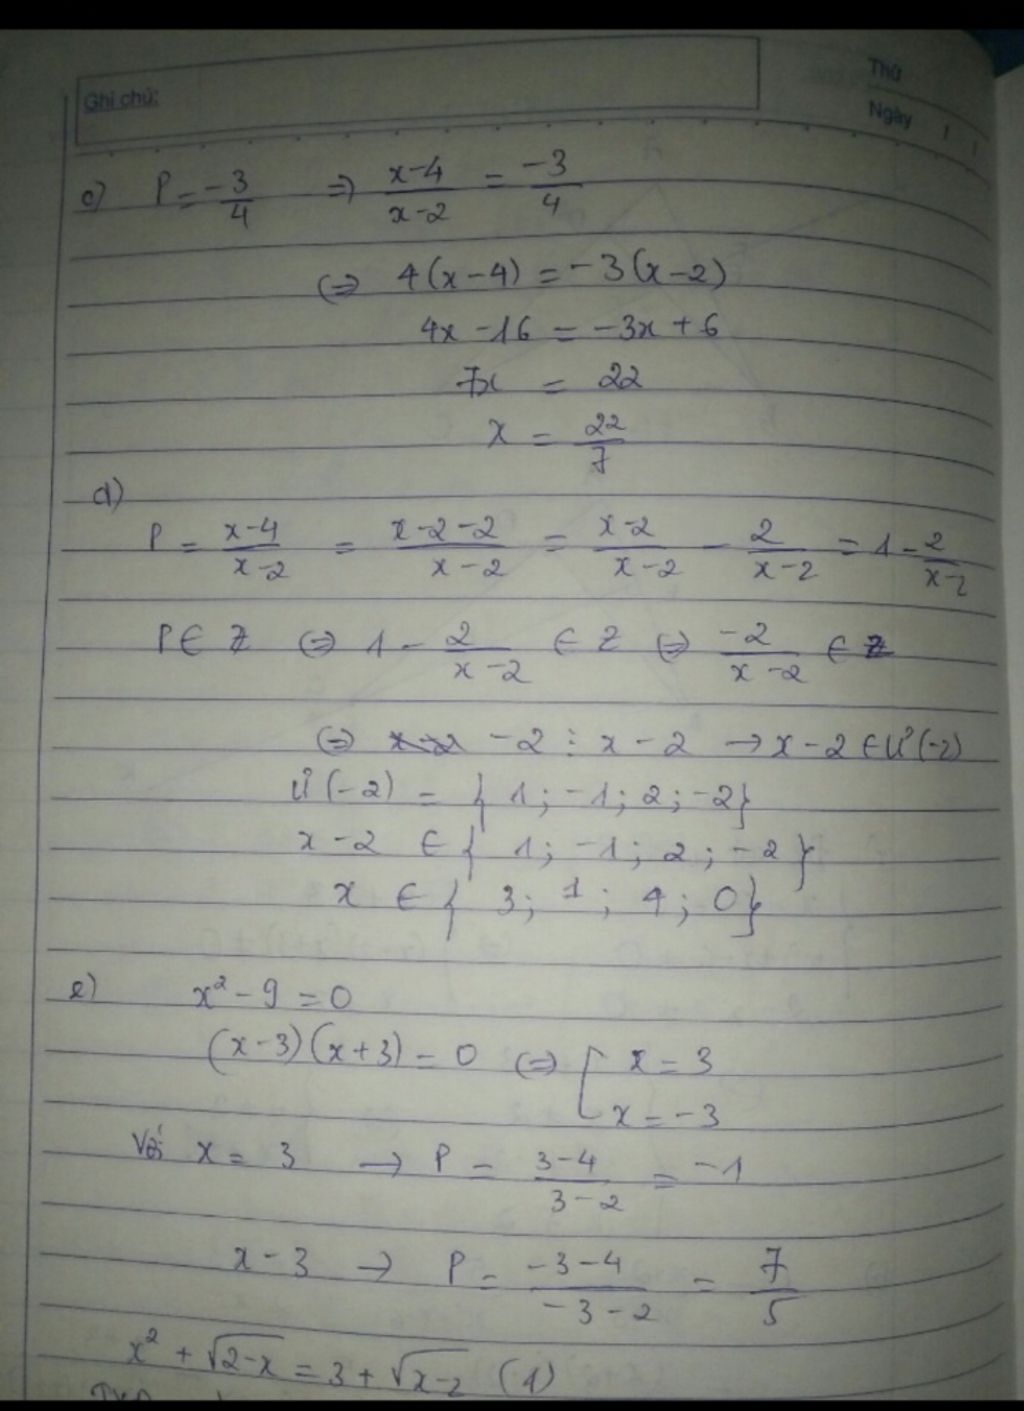 Ghi chú:
Thứ
Ngày / /
c) P = -3/4 => x-4/x-2 = -3/4
(=> 4(x-4) = -3(x-2)
4x - 16 = -3x + 6
7x = 22
x = 22/7
d)
P = x-4/x-2 = x-2-2/x-2 = x-2/x-2 - 2/x-2 = 1 - 2/x-2
P ∈ Z (=> 1 - 2/x-2 ∈ Z (=> -2/x-2 ∈ Z
(=> -2 ⋮ x - 2 → x - 2 ∈ Ư(-2)
Ư(-2) = { 1 ; -1 ; 2 ; -2}
x - 2 ∈ { 1 ; -1 ; 2 ; -2 }
x ∈ { 3 ; 1 ; 4 ; 0}
e) x² - 9 = 0
(x-3)(x+3) = 0 (=> [ x = 3
x = -3
Với x = 3 → P = 3-4/3-2 = -1
x - 3 → P = -3-4/-3-2 = 7/5
x² + √2-x = 3 + √x-2 (1)